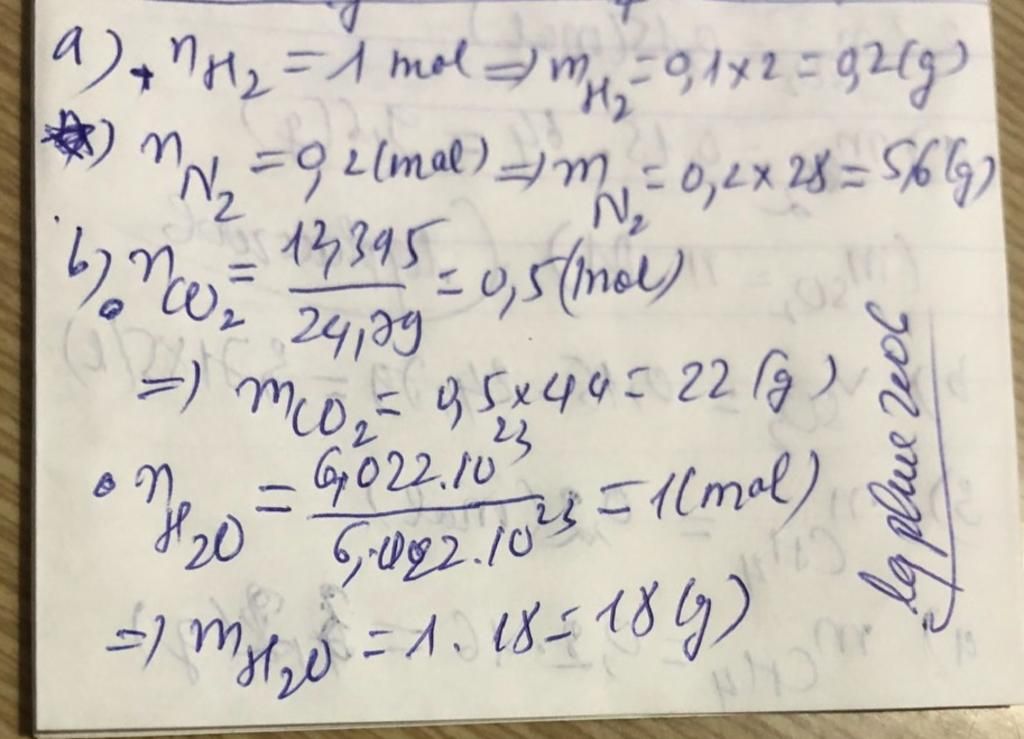 a) + nH₂ = 1 mol => mH₂ = 0,1 x 2 = 0,2 (g)
) nN₂ = 0,2 (mol) => mN₂ = 0,2 x 28 = 5,6 (g)
b) • nCO₂ = 12,395 / 24,79 = 0,5 (mol)
=> mCO₂ = 0,5 x 44 = 22 (g)
• nH₂O = 6,022.10²³ / 6,022.10²³ = 1 (mol)
=> mH₂O = 1. 18 = 18 (g)